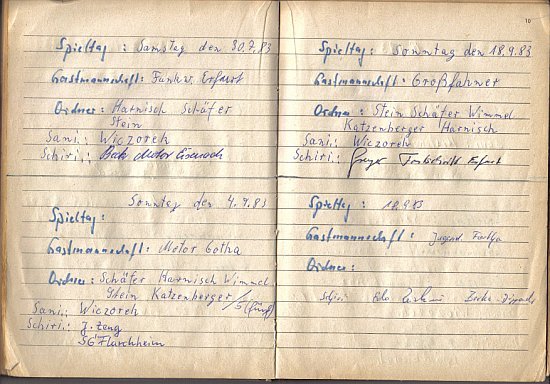 Spieltag: Samstag den 30.7.83
Gastmannschaft: Funkw. Erfurt
Ordner: Harnisch Schäfer
Stein
Sani.: Wiczoreh
Schiri.: Motor Eisenach
Sonntag den 4.9.83
Spieltag:
Gastmannschaft: Motor Gotha
Ordner: Schäfer Harnisch Wimmel
Stein Katzenberger
Sani.: Wiczoreh
Schiri.: J. Zeng
SG Flarchheim
10
Spieltag: Sonntag den 18.9.83
Gastmannschaft: Großfahner
Ordner: Stein Schäfer Wimmel
Katzenberger Harnisch
Sani.: Wiczoreh
Schiri.: Erfurt
Spieltag: 18.9.83
Gastmannschaft: Jugend
Ordner:
Schiri: